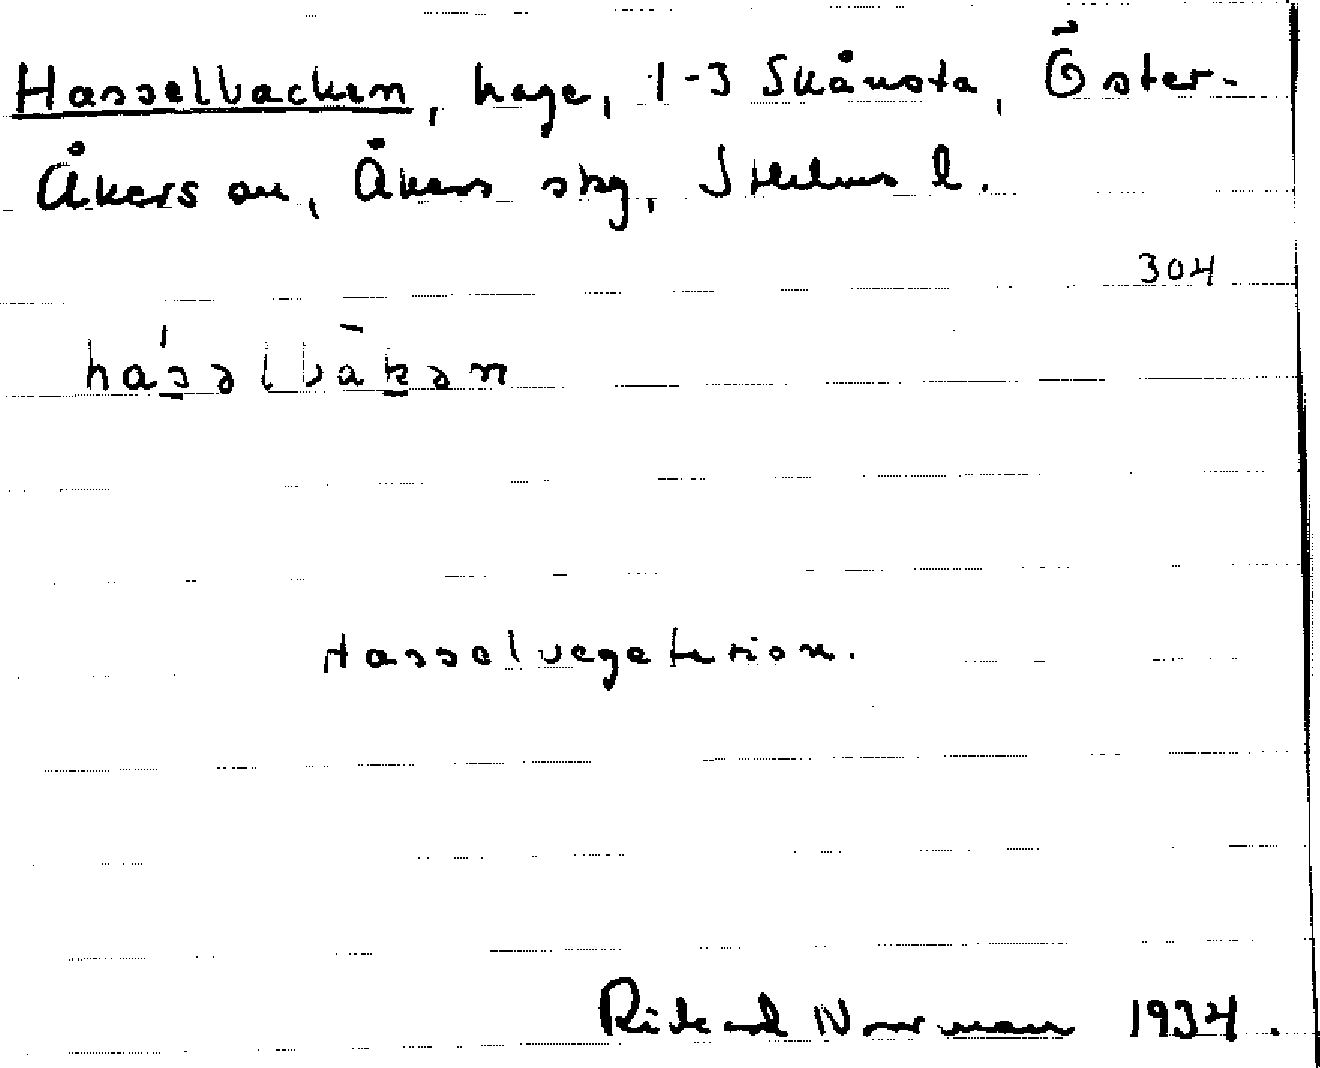 Hasselbacken, hage, 1-3 Skånsta, Öster-
Åkers sn, Åkers skg, Sthlms l.
304
hásəlbàkən
Hasselvegetation.
Rickard Norrman 1934.